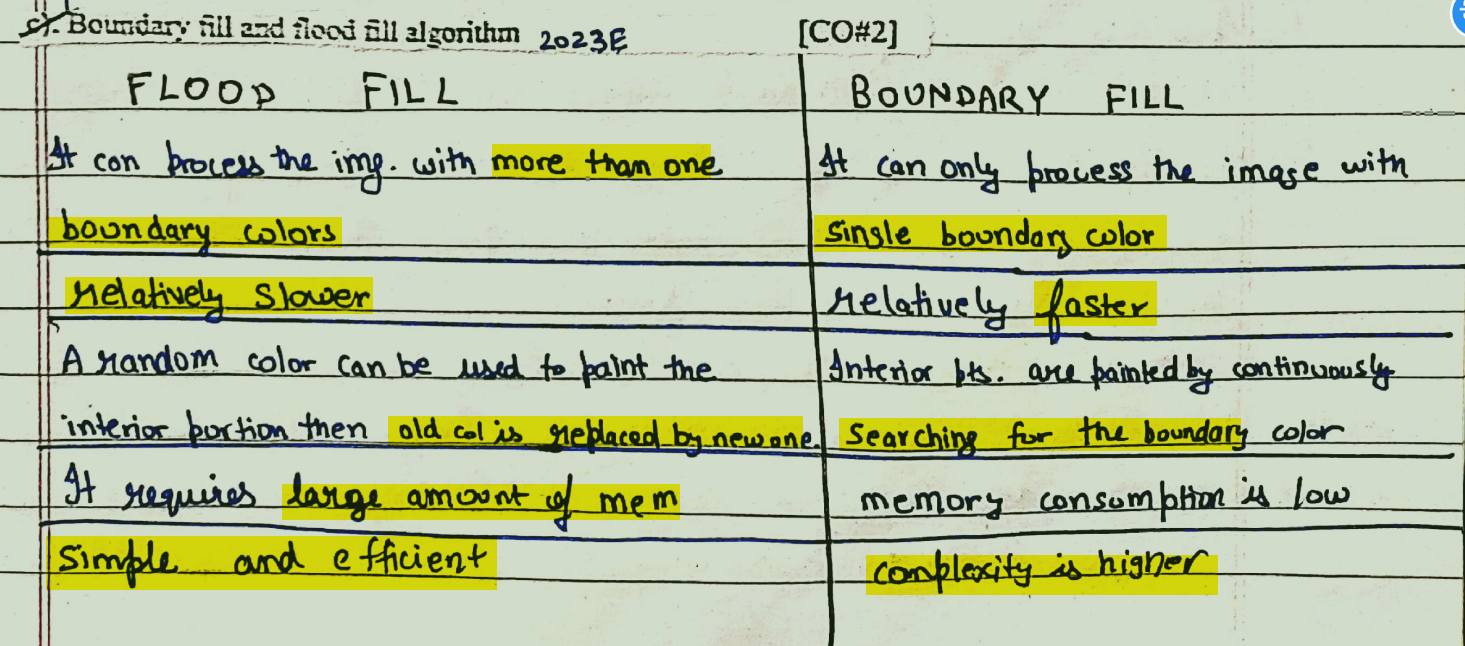 c). Boundary fill and flood fill algorithm 2023E [CO#2]
FLOOD FILL
BOUNDARY FILL
It can process the img. with more than one
boundary colors
It can only process the image with
single boundary color
relatively slower
relatively faster
A random color can be used to paint the
interior portion then old col is replaced by new one.
Interior pts. are painted by continuously
searching for the boundary color
It requires large amount of mem
memory consumption is low
simple and efficient
complexity is higher